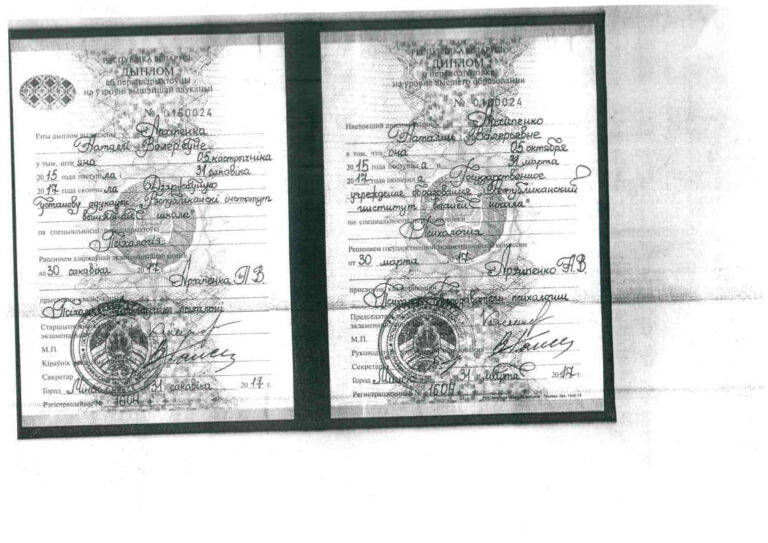 РЭСПУБЛІКА БЕЛАРУСЬ
ДЫПЛОМ
аб перападрыхтоўцы
на ўзроўні вышэйшай адукацыі
№ 0160024
Гэты дыплом выдадзены Архіпенка
Наталлі Валер'еўне
у тым, што яна 05 кастрычніка
2015 года паступіла 31 сакавіка
2017 года скончыла Дзяржаўную
ўстанову адукацыі "Рэспубліканскі інстытут
вышэйшай школа"
па спецыяльнасці перападрыхтоўкі
Псіхалогія
Рашэннем дзяржаўнай экзаменацыйнай камісіі
ад 30 сакавіка 2017
Архіпенка Н.В.
Старшыня
экзаменацыйнай
М.П.
Кіраўнік
Сакратар
Горад Мінск 31 сакавіка 2017 г.
Рэгістрацыйны № 1604
РЕСПУБЛИКА БЕЛАРУСЬ
ДИПЛОМ
о переподготовке
на уровне высшего образования
№ 0160024
Настоящий диплом Архипенко
Наталии Валерьевне
в том, что она 05 октября
2015 года поступила 31 марта
2017 года окончила Государственное
учреждение образования "Республиканский
институт высшей школа"
по специальности переподготовки
Психология
Решением государственной экзаменационной комиссии
от 30 марта 2017
Архипенко Н.В.
присвоена квалификация
Психолог. Преподаватель психологии
Председатель
экзаменационной
М.П.
Руководитель
Секретарь
Город Минск 31 марта 2017 г.
Регистрационный № 1604